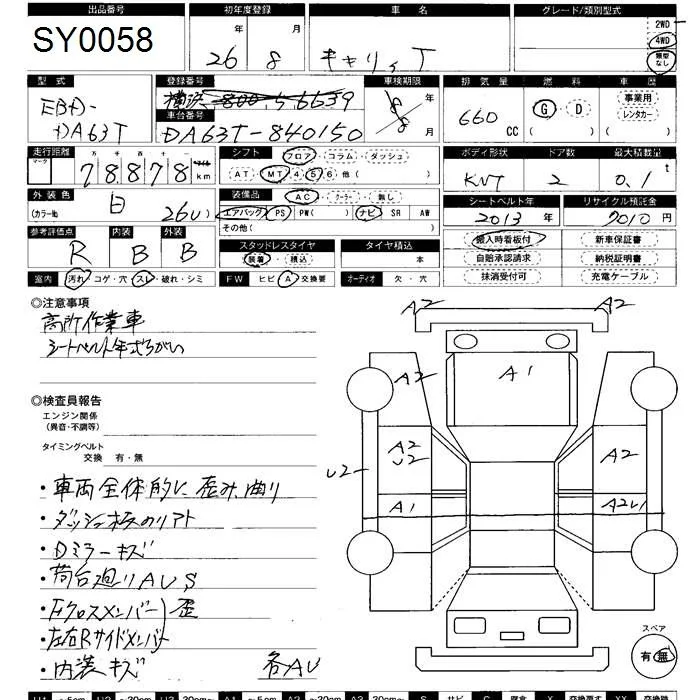 出品番号 初年度登録 車名 グレード/類別型式
SY0058 26年 8月 キャリィT 2WD
4WD
類型なし
型式 登録番号 車検期限 排気量 燃料 車歴
EBD-DA63T 横浜 800 5 6639 年 660 CC G・D 事業用
車台番号 月 レンタカー
DA63T-840150
走行距離 シフト フロア・コラム・ダッシュ ボディ形状 ドア数 最大積載量
マーク 万 千 百 十 マイル
78878 km AT・MT 4 5 6 他( ) 2 0.1 t
外装色 装備品 AC・クーラー・無し シートベルト年 リサイクル預託金
(カラー№ 白 26U) エアバッグ PS PW( ) ナビ SR AW 2013年 7010円
その他( )
参考評価点 内装 外装 搬入時看板付 新車保証書
R B B スタッドレスタイヤ タイヤ積込 自賠承認請求 納税証明書
装着・積込 本 抹消受付可 充電ケーブル
室内 汚れ・コゲ・穴・スレ・破れ・シミ FW ヒビ・A・交換要 オーディオ 欠・穴
◎注意事項
高所作業車
シートベルト年式ちがい
◎検査員報告
エンジン関係
(異音・不調等)
タイミングベルト
交換 有・無
・車両全体的に歪み、曲り
・ダッシュ板のリフト
・Dミラーキズ
・荷台廻りAUS
・Fクロスメンバー 歪
・左右Rサイドメンバー
・内装キズ 各AU
A2 A2
A2 A1
A2
U2 A2
U2
A1 A2U1
スペア
有・無